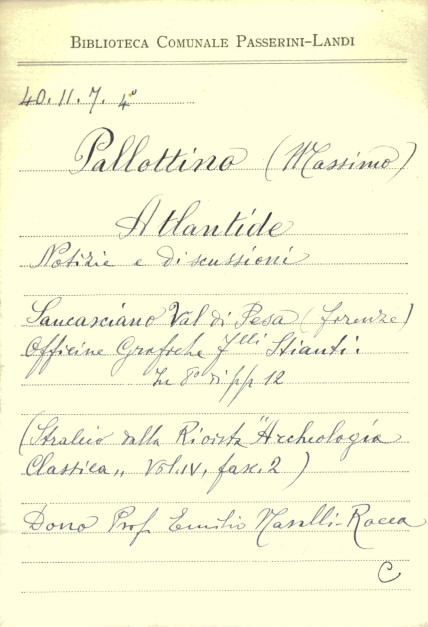 BIBLIOTECA COMUNALE PASSERINI-LANDI
40.11.7. 4°
Pallottino (Massimo)
Atlantide
Notizie e discussioni
Sancasciano Val di Pesa (Firenze)
Officine Grafiche F.lli Stianti.
In 8° di pp 12
(Stralcio dalla Rivista "Archeologia
Classica„ Vol. IV, fasc. 2)
Dono Prof. Emilio Nasalli-Rocca
C